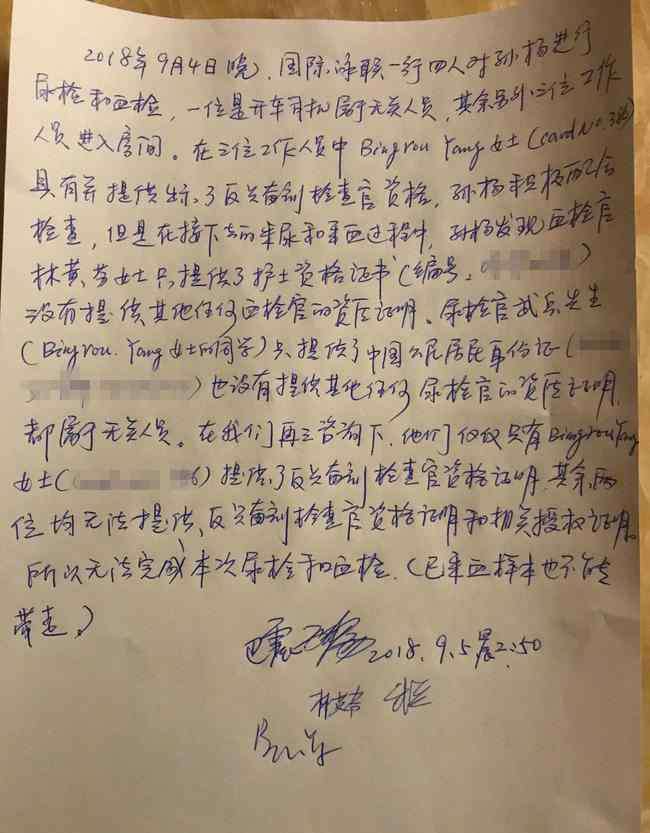 2018年9月4日晚,国际泳联一行四人对孙杨进行
尿检和血检,一位是开车司机属于无关人员,其余另外三位工作
人员进入房间。在三位工作人员中Bingrou Yang女士(card No.386)
具有并提供出示了反兴奋剂检查官资格,孙杨积极配合
检查,但是在接下去的采尿和采血过程中,孙杨发现血检官
林黄芬女士只提供了护士资格证书(编号:
没有提供其他任何血检官的资历证明。尿检官武兵先生
(Bingrou.Yang女士的同学)只提供了中国公民居民身份证(
)也没有提供其他任何尿检官的资历证明,
都属于无关人员。在我们再三咨询下,他们仅仅只有Bingrou Yang
女士( 6)提供了反兴奋剂检查官资格证明,其余两
位均无法提供反兴奋剂检查官资格证明和相关授权证明。
所以无法完成本次尿检和血检。(已采血样本也不能
带走。)
2018.9.5晨2:50